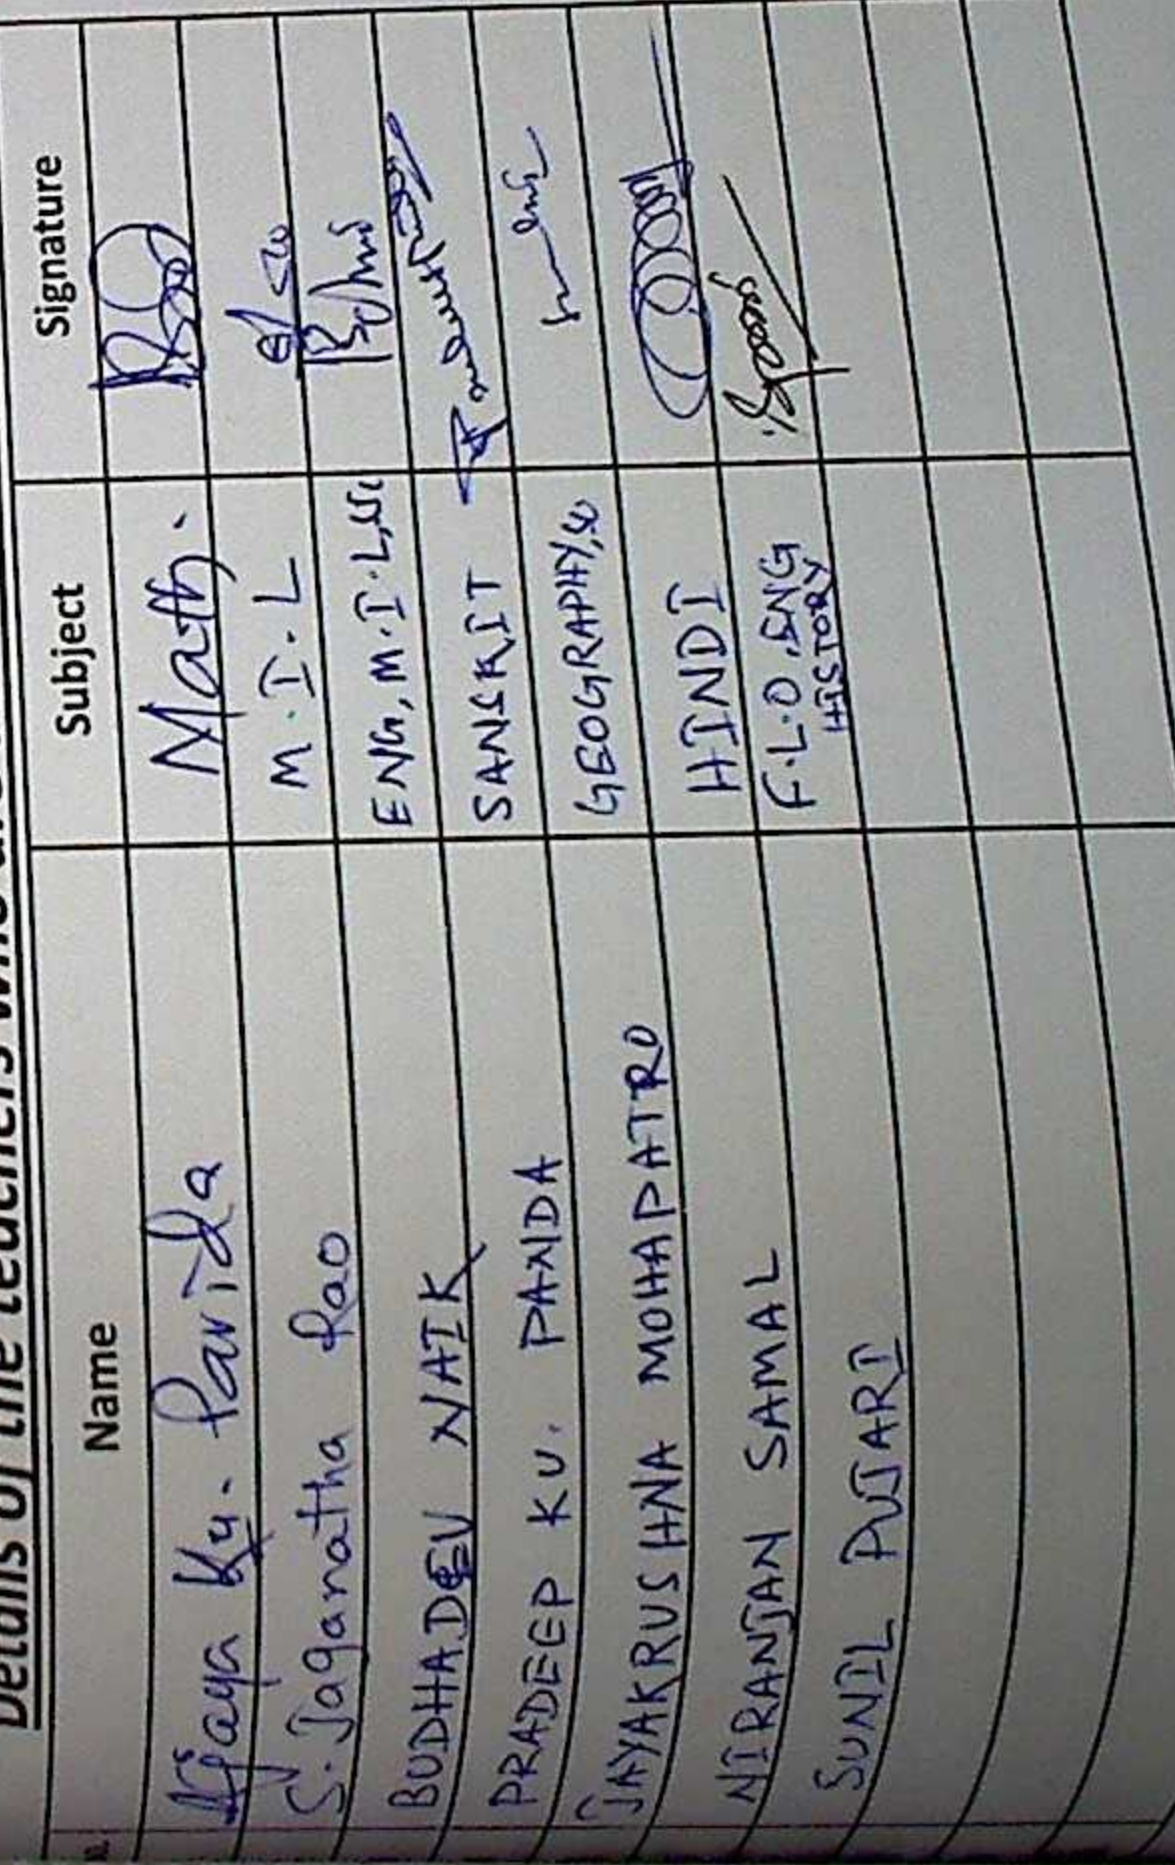 Details of the teachers who
Name Subject Signature
Ajaya Ku. Parida Math.
S. Jaganatha Rao M.I.L
BUDHADEV NAIK ENG, M.I.L,
PRADEEP KU. PANDA SANSKIT
JAYAKRUSHNA MOHAPATRO GEOGRAPHY,
NIRANJAN SAMAL HINDI
SUNIL PUJARI F.L.O, ENG
HISTORY